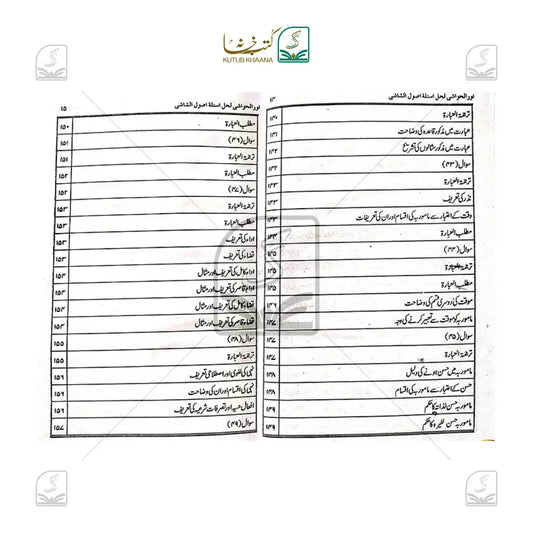 کتب خانہ
KUTUB KHAANA
نور الحواشی لحل اسئلة اصول الشاشی ۱۴
ترجمۃ العبارۃ ۱۳۰
عبارت میں مذکور قاعدہ کی وضاحت ۱۳۱
عبارت میں مذکور مثالوں کی تشریح ۱۳۲
سوال (۳۳) ۱۳۲
ترجمۃ العبارۃ ۱۳۲
نذر کی تعریف ۱۳۲
وقت کے اعتبار سے مامور بہ کی اقسام اور ان کی تعریفات ۱۳۳
مطلب العبارۃ ۱۳۳
سوال (۳۴) ۱۳۵
ترجمۃ العبارۃ ۱۳۵
مطلب العبارۃ ۱۳۵
موقت کی دوسری قسم کی وضاحت ۱۳۶
مامور بہ کو موقت سے تعبیر کرنے کی وجہ ۱۳۷
سوال (۳۵) ۱۳۷
ترجمۃ العبارۃ
مامور بہ میں حسن ہونے کی دلیل ۱۳۸
حسن کے اعتبار سے مامور بہ کی اقسام ۱۳۸
مامور بہ حسن لذاتہ کا حکم ۱۳۹
مامور بہ حسن لغیرہ کا حکم ۱۳۹
نور الحواشی لحل اسئلة اصول الشاشی ۱۵
مطلب العبارۃ ۱۵۰
سوال (۳۶) ۱۵۱
ترجمۃ العبارۃ ۱۵۱
مطلب العبارۃ ۱۵۲
سوال (۳۷) ۱۵۲
ترجمۃ العبارۃ ۱۵۲
مطلب العبارۃ ۱۵۳
اداء کی تعریف ۱۵۳
قضاء کی تعریف ۱۵۳
اداء کامل کی تعریف اور مثال ۱۵۳
اداء قاصر کی تعریف اور مثال ۱۵۴
قضاء کامل کی تعریف اور مثال ۱۵۴
قضاء قاصر کی تعریف اور مثال ۱۵۴
سوال (۳۸) ۱۵۵
ترجمۃ العبارۃ ۱۵۵
نہی کی لغوی اور اصطلاحی تعریف ۱۵۶
نہی کی اقسام اور ان کی وضاحت ۱۵۶
افعال حسیہ اور تصرفات شرعیہ کی تعریف ۱۵۶
سوال (۳۹) ۱۵۷
KUTUB KHAANA